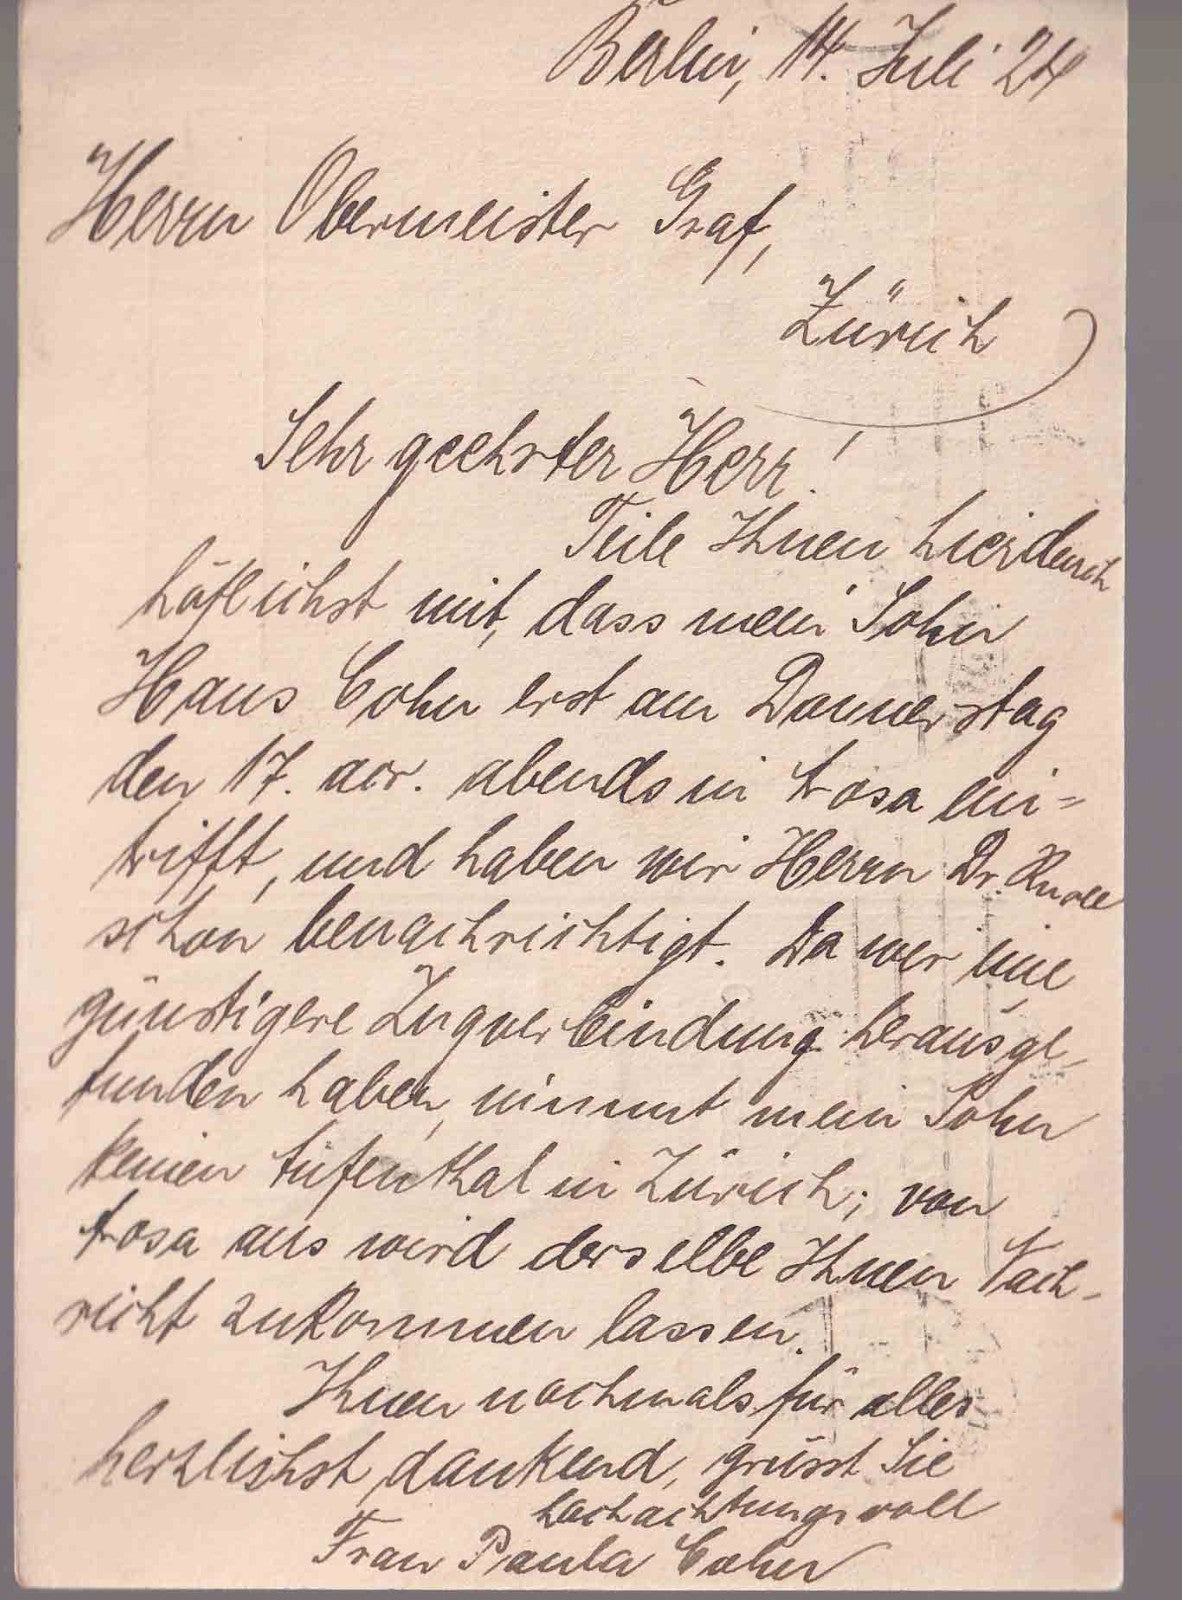 Berlin, 14. Juli 24
Herrn Obermeister Graf,
Zürich
Sehr geehrter Herr!
Teile Ihnen hierdurch
höflichst mit, dass mein Sohn
Hans Cohn erst am Donnerstag
den 17. abends in Arosa ein=
trifft, und haben wir Herrn Dr. Knoll
schon benachrichtigt. Da wir eine
günstigere Zugverbindung herausge-
funden haben, nimmt mein Sohn
keinen Aufenthal in Zürich; von
Arosa aus wird derselbe Ihnen Nach-
richt zukommen lassen.
Ihnen nochmals für alles
herzlichst dankend, grüsst Sie
hochachtungsvoll
Frau Paula Cohn